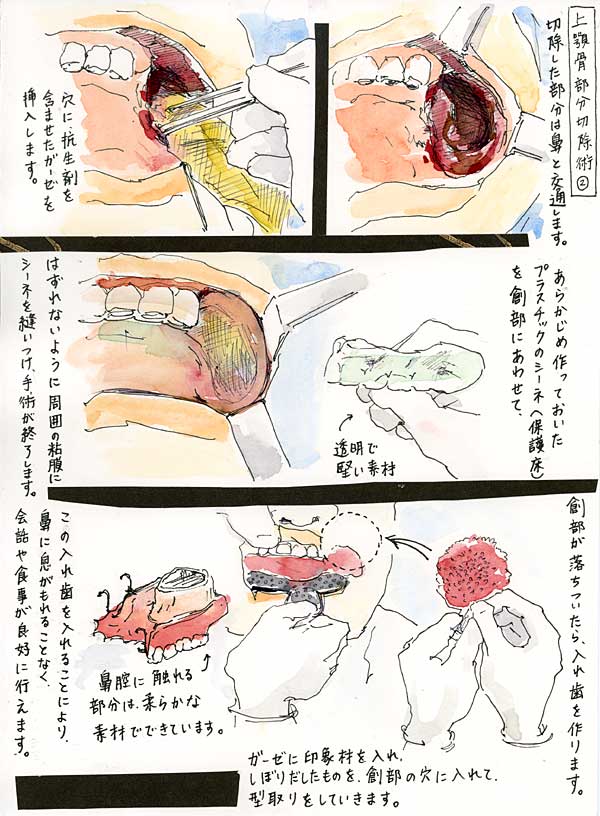 上顎骨部分切除術②
切除した部分は鼻と交通します。
穴に抗生剤を
含ませたガーゼを
挿入します。
あらかじめ作っておいた
プラスチックのシーネ(保護床)
を創部にあわせて、
透明で
堅い素材
はずれないように周囲の粘膜に
シーネを縫いつけ、手術が終了します。
創部が落ちついたら、入れ歯を作ります。
ガーゼに印象材を入れ、
しぼりだしたものを、創部の穴に入れて、
型取りをしていきます。
鼻腔に触れる
部分は、柔らかな
素材でできています。
この入れ歯を入れることにより、
鼻に息がもれることなく、
会話や食事が良好に行えます。